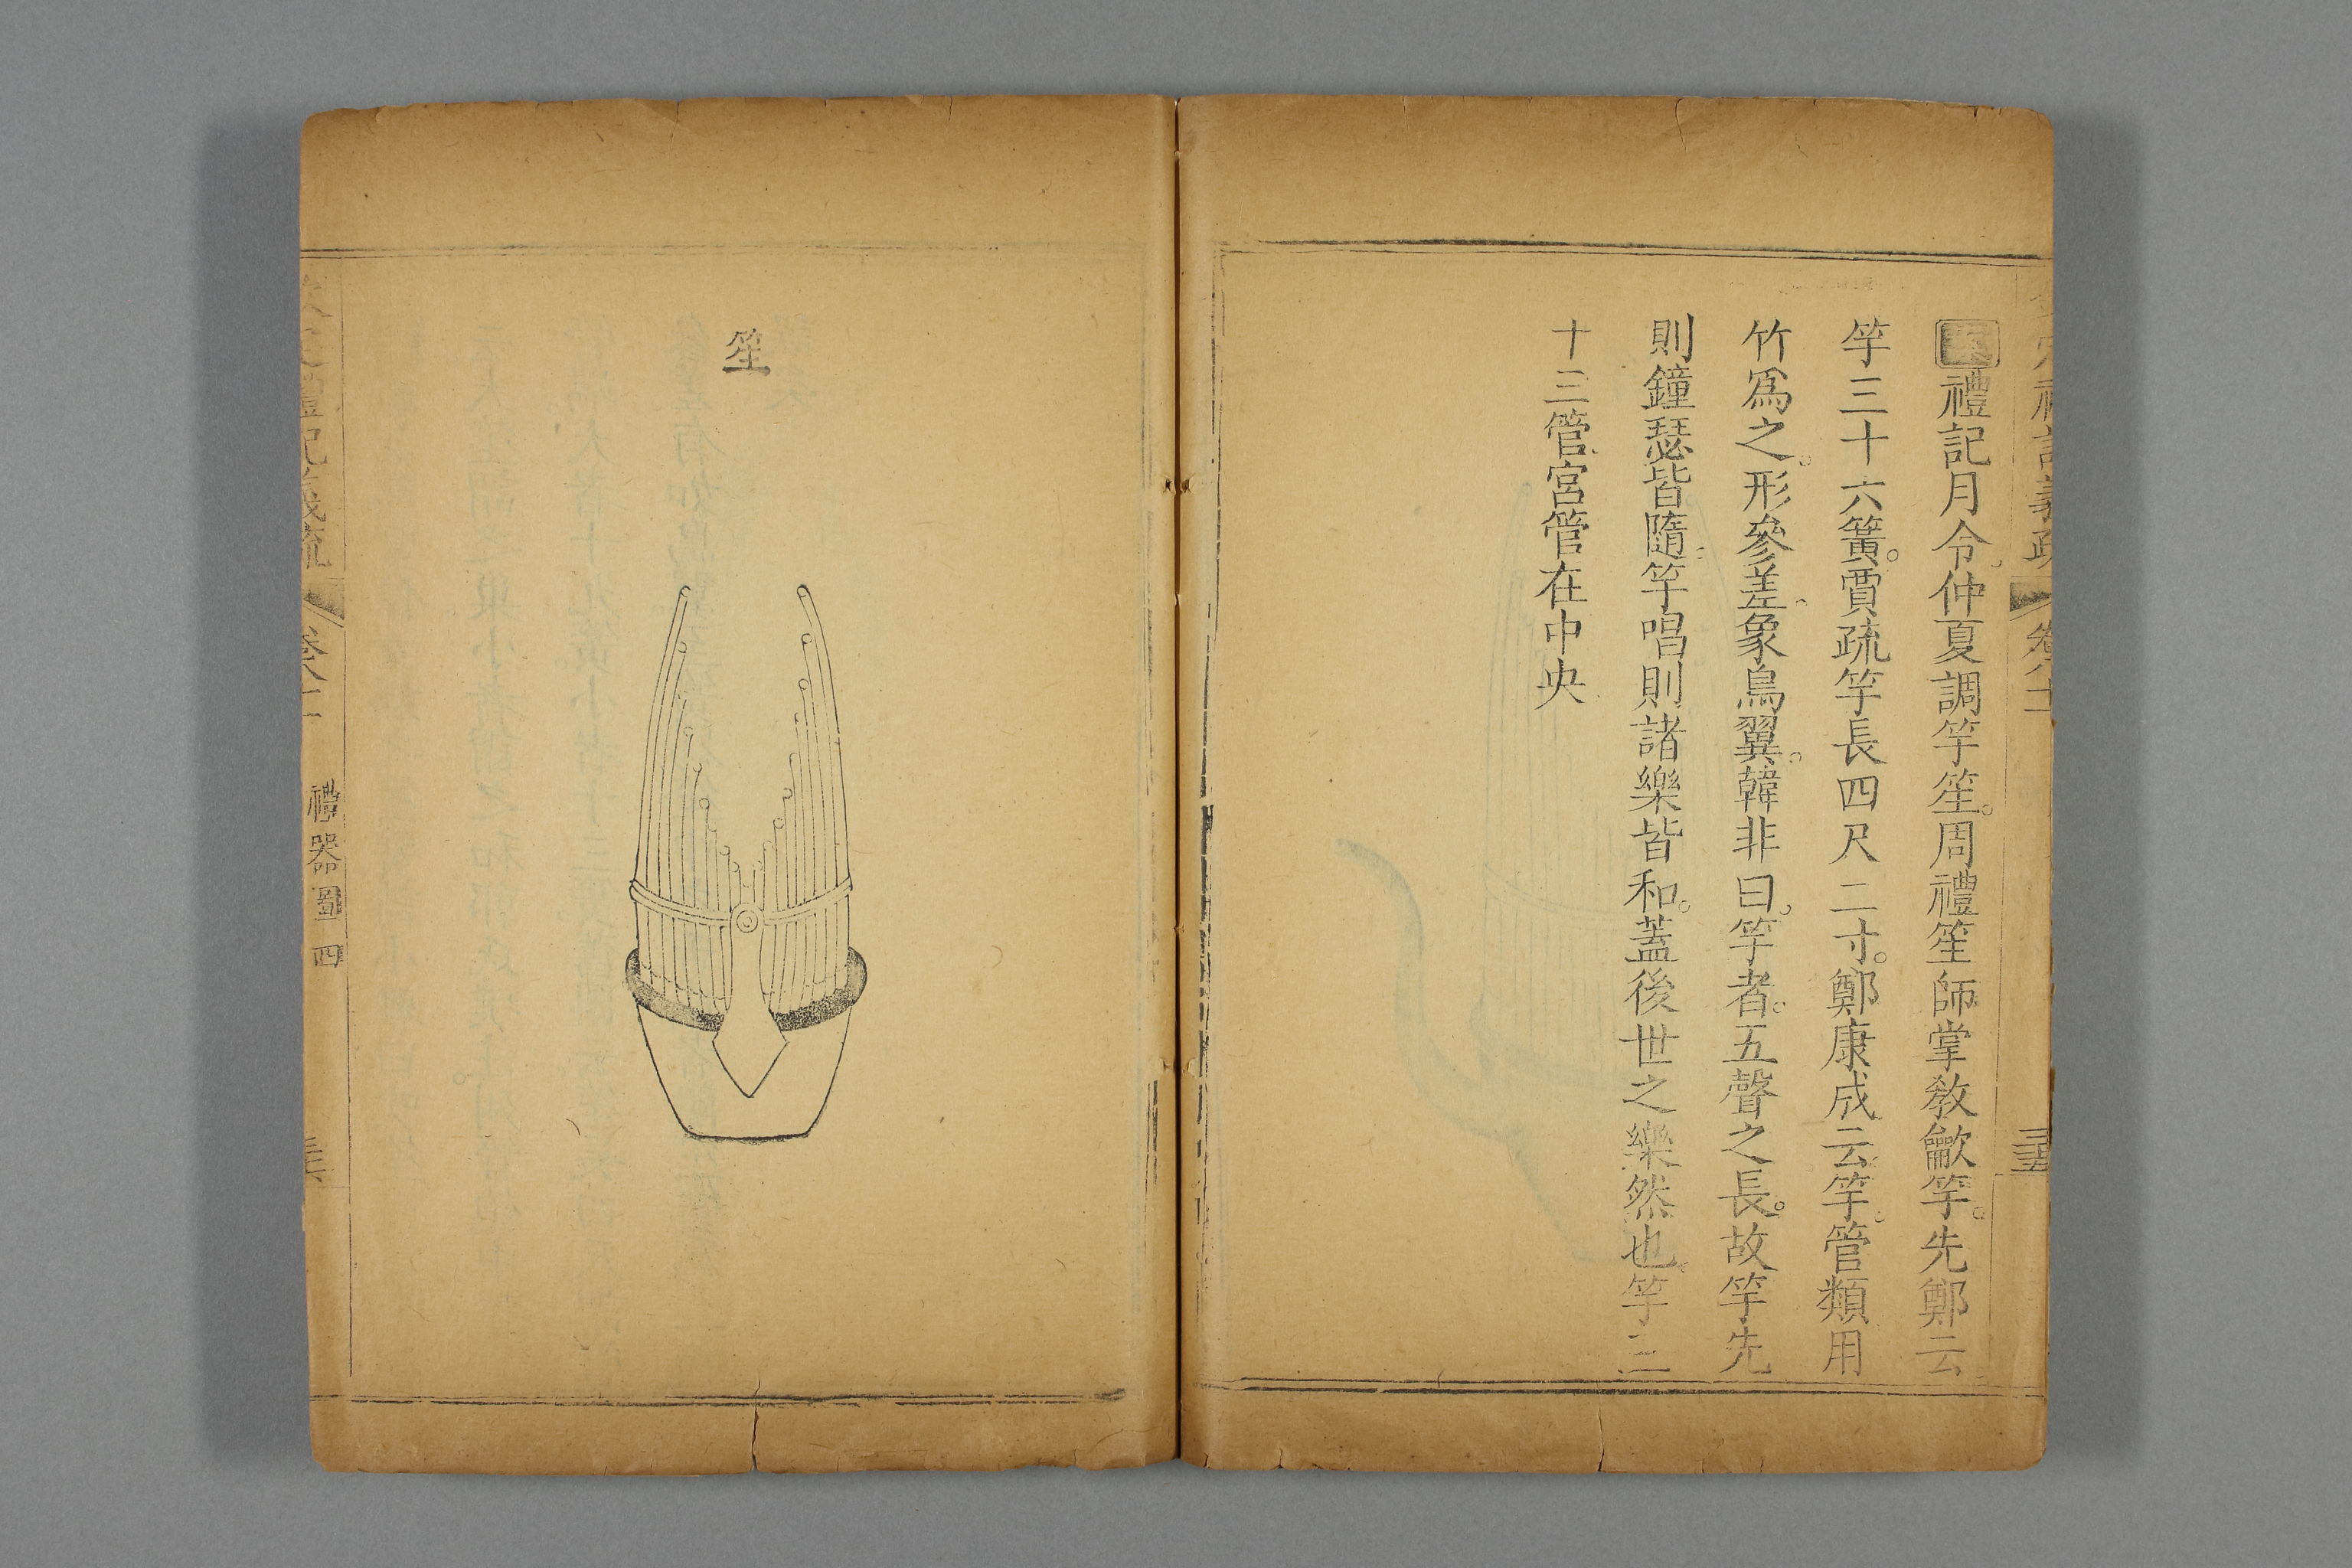 禮記月令仲夏調竽笙。周禮笙師掌敎龡竽。先鄭云
竽三十六簧。賈疏竽長四尺二寸。鄭康成云竽管類用
竹爲之。形參差象鳥翼。韓非曰竽者五聲之長。故竽先
則鐘瑟皆隨竽唱則諸樂皆和。蓋後世之樂然也竽二
十三管宮管在中央
笙
禮記義疏 卷八十 禮器圖四